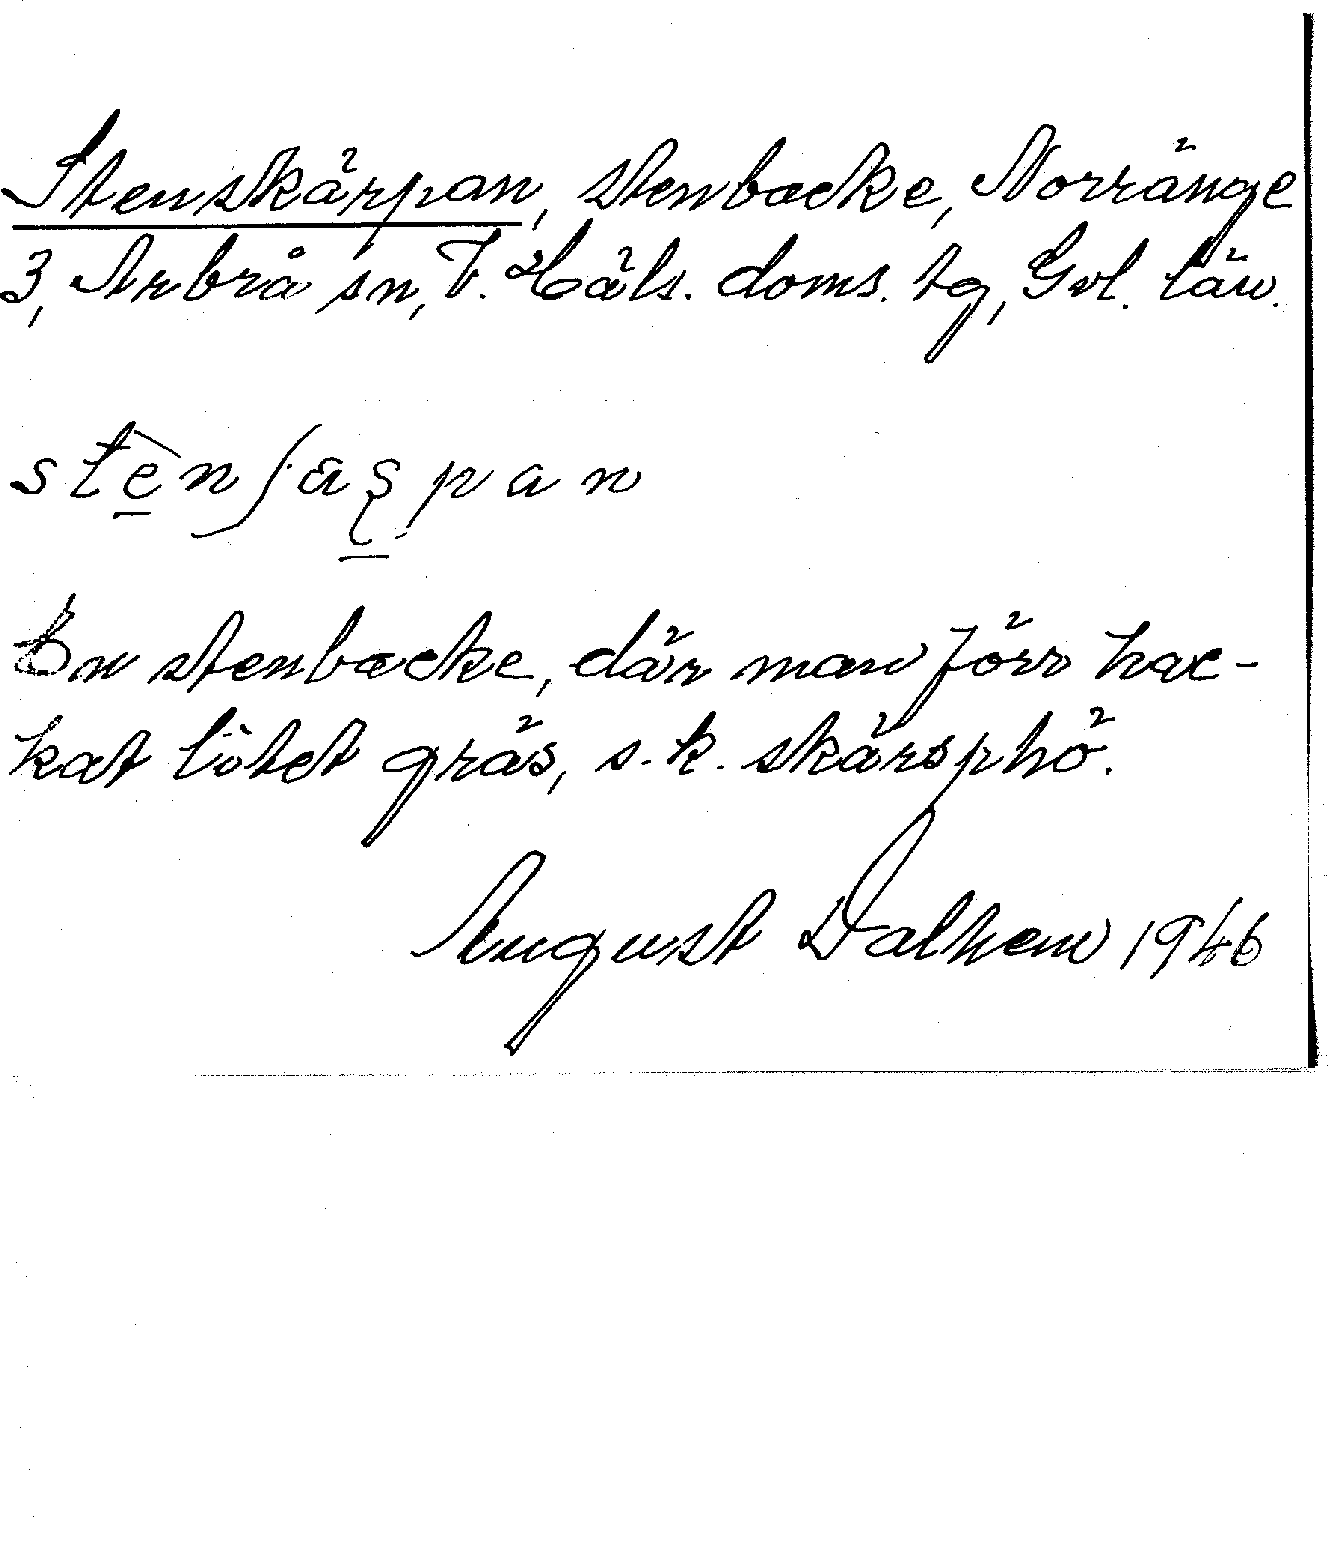 Stenskärpan, stenbacke, Norränge
3, Arbrå sn, V. Häls. doms. tg, Gvl. län.
En stenbacke, där man förr hac-
kat lötet gräs, s.k. skärsphö.
August Dalhem 1946